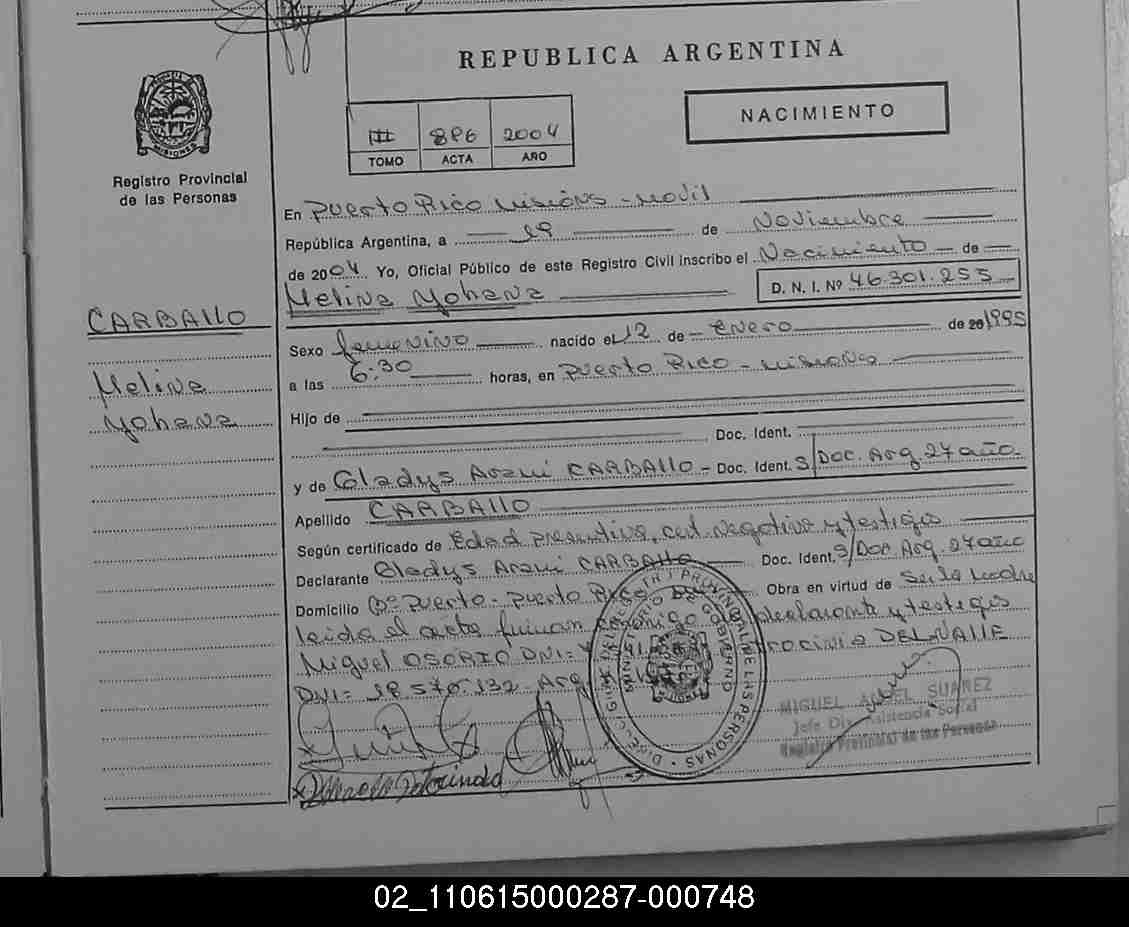 REPUBLICA ARGENTINA
NACIMIENTO
III 896 2004
TOMO ACTA AÑO
MISIONES
Registro Provincial
de las Personas
CARBALLO
Melina
Yohana
En Puerto Rico Misiones - Movil
República Argentina, a 19 de Noviembre
de 2004 Yo, Oficial Público de este Registro Civil inscribo el Nacimiento de
Melina Yohana D. N. I. Nº 46.301.255
Sexo femenino nacido el 12 de Enero de 20 1995
a las 6:30 horas, en Puerto Rico - Misiones
Hijo de
Doc. Ident.
y de Gladys Arami CARBALLO - Doc. Ident. S/Doc. Arg. 27 año
Apellido CARBALLO
Según certificado de Edad presuntiva, cert. negativo y testigos
Declarante Gladys Arami CARBALLO Doc. Ident. S/Doc. Arg. 27 año
Domicilio Bº Puerto - Puerto Rico Obra en virtud de Ser la Madre
leida el acta firman conmigo declarante y testigos
Miguel OSORIO DNI: DEL VALLE
DNI= 18.570.132 - Arg
MINISTERIO DE GOBIERNO
PROVINCIAL DE LAS PERSONAS
MIGUEL ANGEL SUAREZ
Jefe Div. Asistencia Social
Registro Provincial de las Personas
02_110615000287-000748